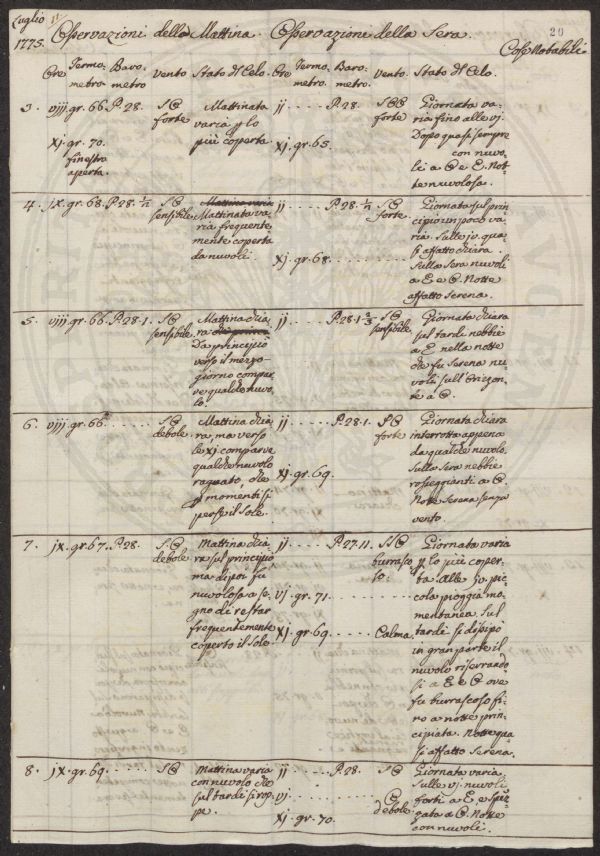 Luglio
1775. Osservazioni della Mattina Osservazioni della Sera.
20
Cose Notabili
Ore Termo-metro Baro-metro vento Stato di Celo. Ore Termo-metro. Baro-metro. vento. Stato di Celo.
3. viij. gr. 66. P. 28. S
forte
Mattinata
varia p lo
più coperta.
xj. gr. 70.
finestra
aperta.
jj P. 28.
forte
xj. gr. 65.
Giornata va-
ria fino alle vj.
Dopo quasi sempre
con nuvo-
li a
Not-
te nuvolosa.
4. jx. gr. 68. P. 28.
sensibile
Mattina varia
Mattinata va-
ria frequente-
mente coperta
da nuvoli.
jj P. 28.
forte
xj. gr. 68.
Giornata sul prin-
cipio un poco va-
ria. Sulle jv. qua-
si affatto chiara.
Sulla Sera nuvoli
a
Notte
affatto Serena.
5. viij. gr. 66. P. 28. 1.
sensibile
Mattina chia-
ra
Da principio
verso il mezzo-
giorno compar-
ve qualche nuvo-
lo.
jj P. 28. 1 2/3
sensibile
Giornata chiara
sul tardi nebbie
a
nella notte
che fu Serena nu-
voli sull'Orizon-
te a
6. viij. gr. 66.
debole
Mattina chia-
ra, ma verso
le xj comparve
qualche nuvolo
ragnato, che
p momenti si
perse il Sole.
jj P. 28. 1.
forte
xj. gr. 69.
Giornata chiara
interrotta appena
da qualche nuvolo.
Sulla Sera nebbie
rosseggianti a
Notte Serena senza
vento.
7. jx. gr. 67. P. 28.
debole
Mattina chia-
ra sul principio
ma dipoi fu
nuvolosa a se-
gno di restar
frequentemente
coperto il Sole
jj P. 27. 11.
burrasco-
so.
vj. gr. 71.
xj. gr. 69. Calma.
Giornata varia
p lo più coper-
ta. Alle
pic-
cola pioggia mo-
mentanea. Sul
tardi si dissipò
in gran parte il
nuvolo riserrando-
si a
ove
fu burrascoso fi-
no a notte prin-
cipiata. Notte qua-
si affatto Serena.
8. jx. gr. 69.
Mattina varia
con nuvolo che
sul tardi si rop-
pe.
jj P. 28.
vj
Debole
xj. gr. 70.
Giornata varia.
Sulle vj. nuvoli
forti a
Notte
con nuvoli.